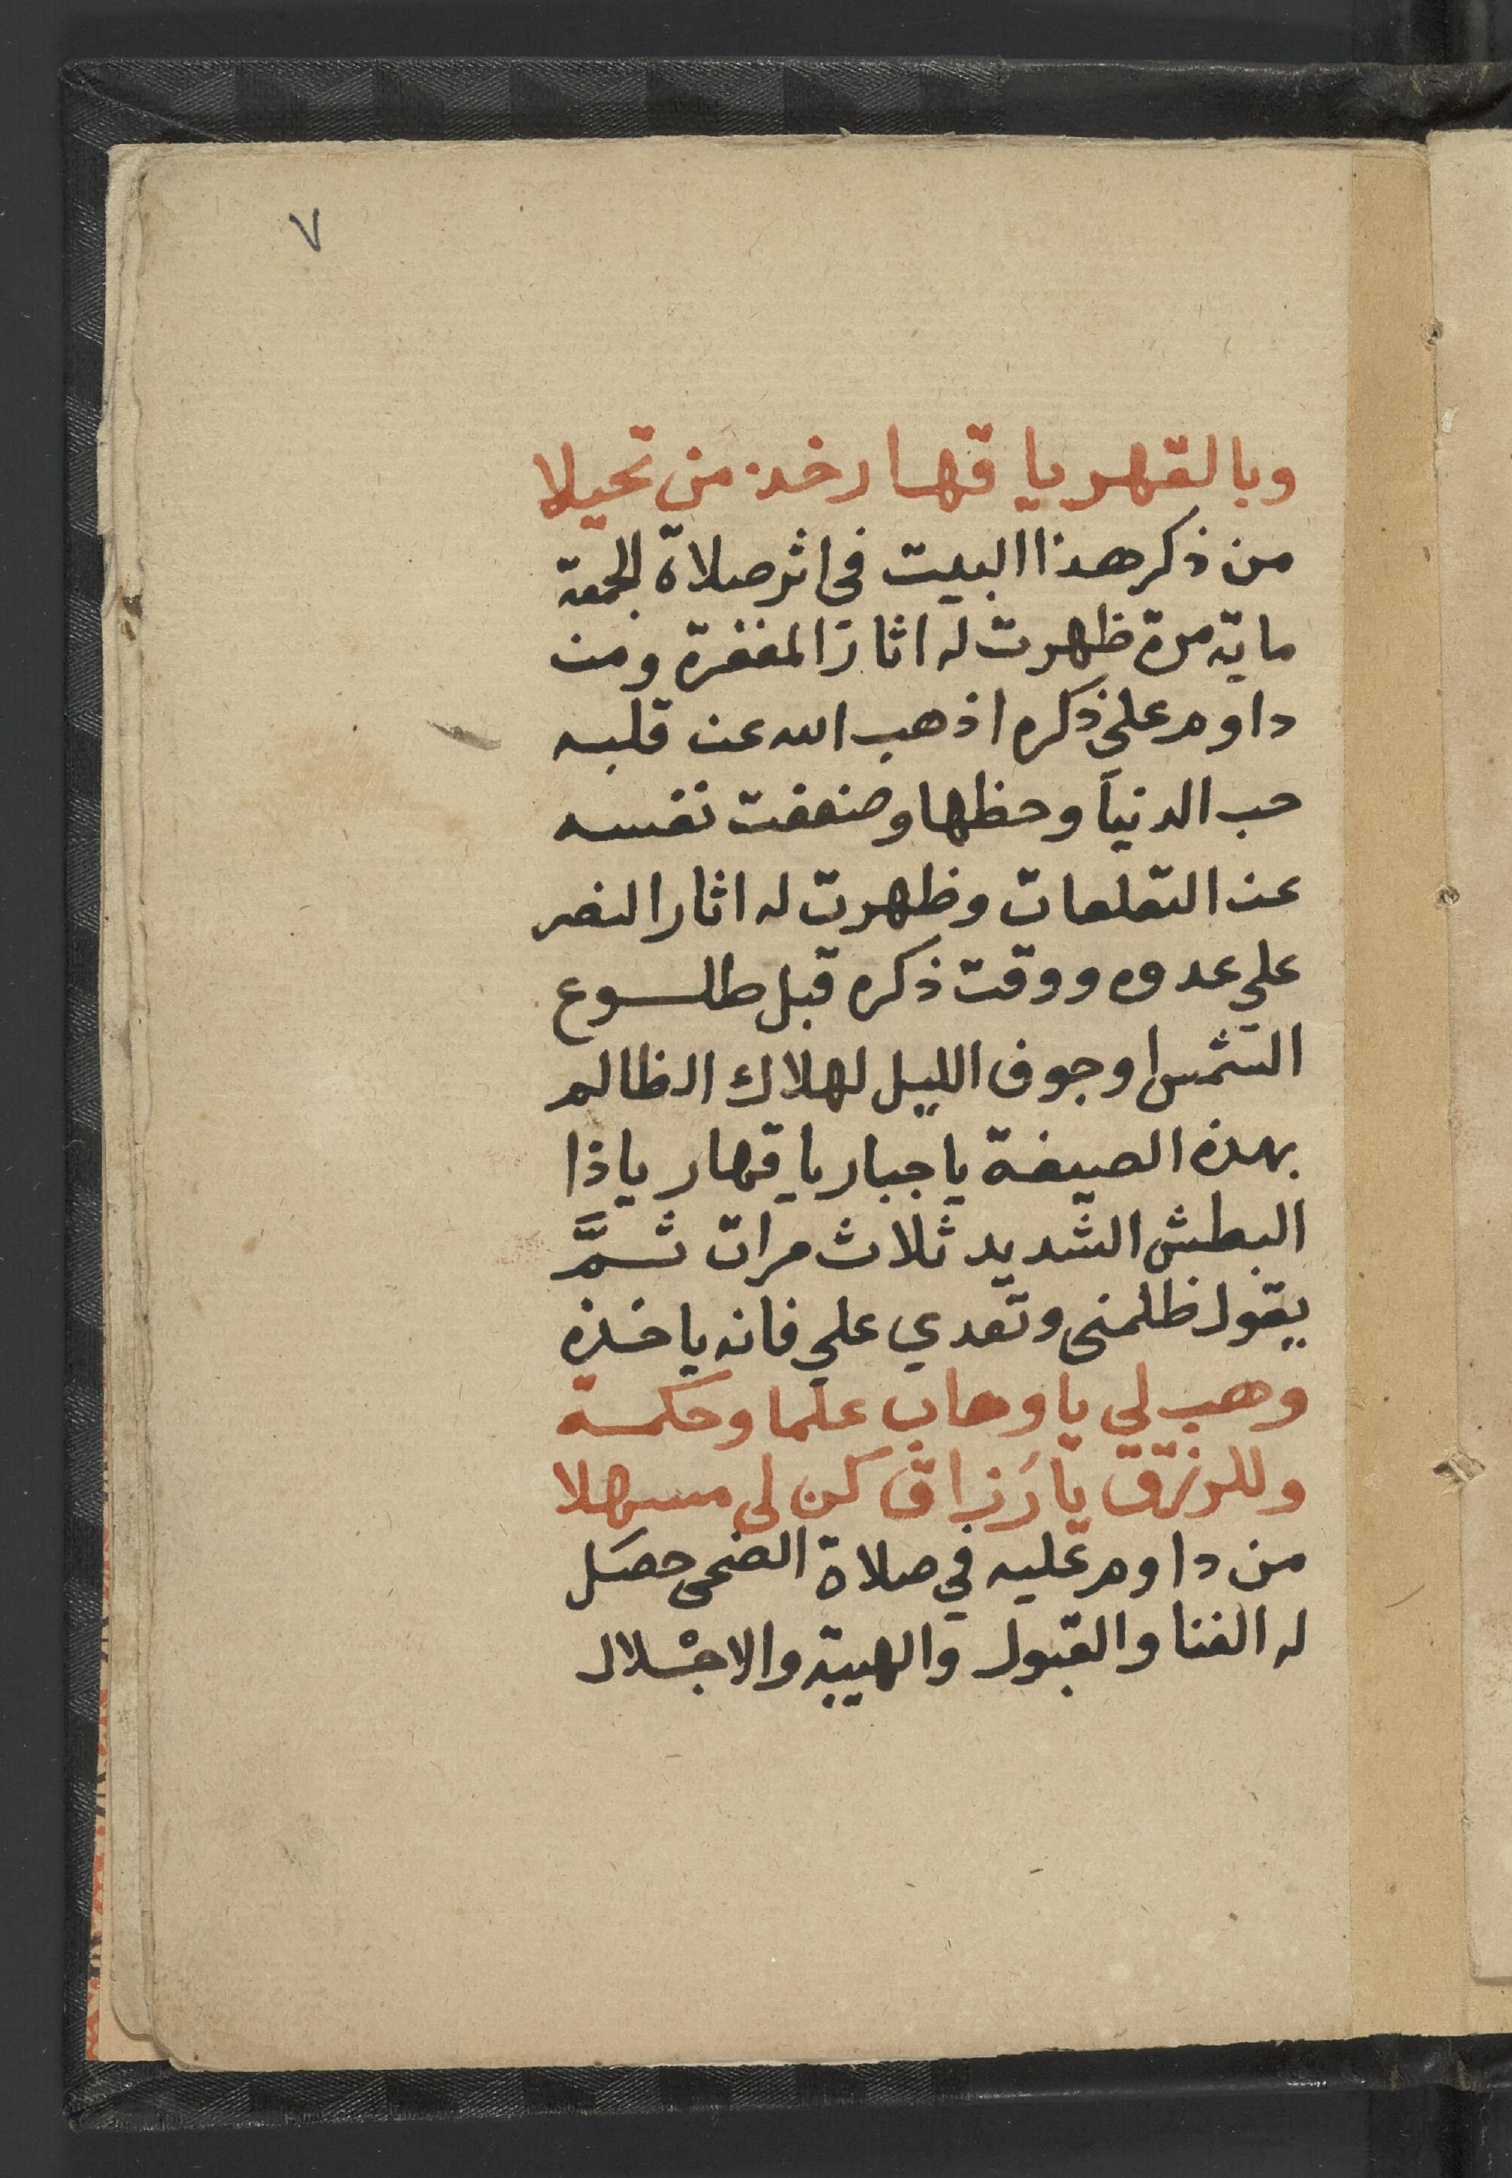 ٧
وبالقهر يا قهار خذ من تحيلا
من ذكر هذا البيت في اثر صلاة الجمعة
ماية مرة ظهرت له اثار المغفرة ومن
داوم علي ذكره اذهب الله عن قلبه
حب الدنيا وحظها وضعفت نفسه
عن التعلعات وظهرت له اثار النصر
علي عدوه ووقت ذكره قبل طلوع
الشمس اوجوف الليل لهلاك الظالم
بهذه الصيغة يا جبار يا قهار يا ذا
البطش الشديد ثلاث مرات ثمَّ
يقول ظلمني وتعدي علي فانه ياخذه
وهب لي يا وهاب علما وحكمة
وللرزق يا رَزاق كن لي مسهلا
من داوم عليه في صلاة الضحى حصَل
له الغنا والقبول والهيبة والاجْلال